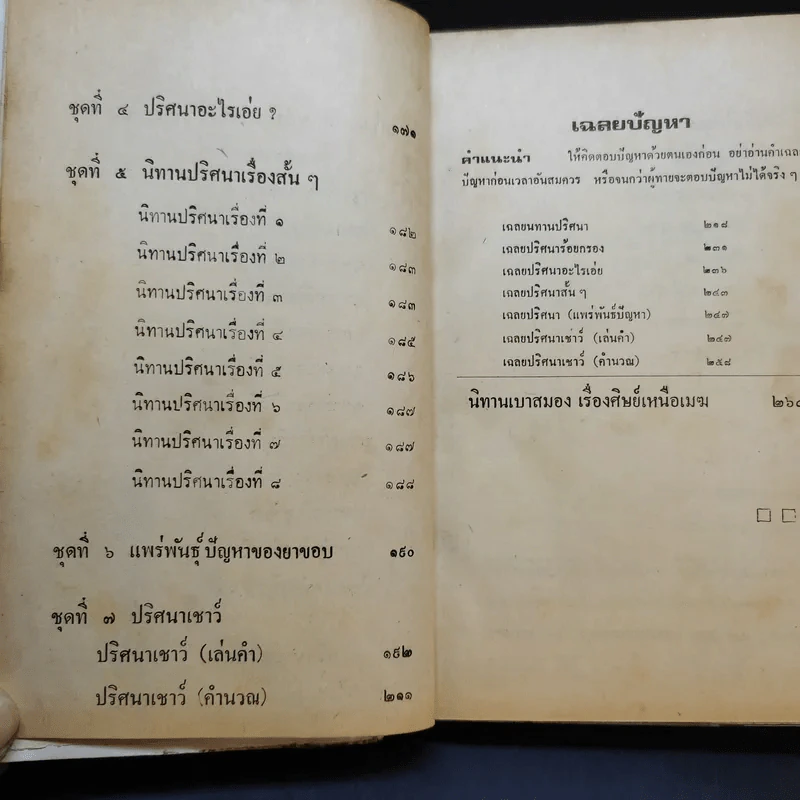 ชุดที่ ๔ ปริศนาอะไรเอ่ย ? ๑๗๑
ชุดที่ ๕ นิทานปริศนาเรื่องสั้น ๆ
นิทานปริศนาเรื่องที่ ๑ ๑๘๒
นิทานปริศนาเรื่องที่ ๒ ๑๘๓
นิทานปริศนาเรื่องที่ ๓ ๑๘๓
นิทานปริศนาเรื่องที่ ๔ ๑๘๕
นิทานปริศนาเรื่องที่ ๕ ๑๘๖
นิทานปริศนาเรื่องที่ ๖ ๑๘๗
นิทานปริศนาเรื่องที่ ๗ ๑๘๗
นิทานปริศนาเรื่องที่ ๘ ๑๘๘
ชุดที่ ๖ แพร่พันธุ์ปัญหาของยาขอบ ๑๙๐
ชุดที่ ๗ ปริศนาเชาว์
ปริศนาเชาว์ (เล่นคำ) ๑๙๒
ปริศนาเชาว์ (คำนวณ) ๒๑๑
เฉลยปัญหา
คำแนะนำ ให้คิดตอบปัญหาด้วยตนเองก่อน อย่าอ่านคำเฉลย
ปัญหาก่อนเวลาอันสมควร หรือจนกว่าผู้ทายจะตอบปัญหาไม่ได้จริง ๆ
เฉลยนทานปริศนา ๒๑๘
เฉลยปริศนาร้อยกรอง ๒๓๑
เฉลยปริศนาอะไรเอ่ย ๒๓๖
เฉลยปริศนาสั้น ๆ ๒๔๓
เฉลยปริศนา (แพร่พันธ์ปัญหา) ๒๔๗
เฉลยปริศนาเชาว์ (เล่นคำ) ๒๔๗
เฉลยปริศนาเชาว์ (คำนวณ) ๒๕๘
นิทานเบาสมอง เรื่องศิษย์เหนือเมฆ